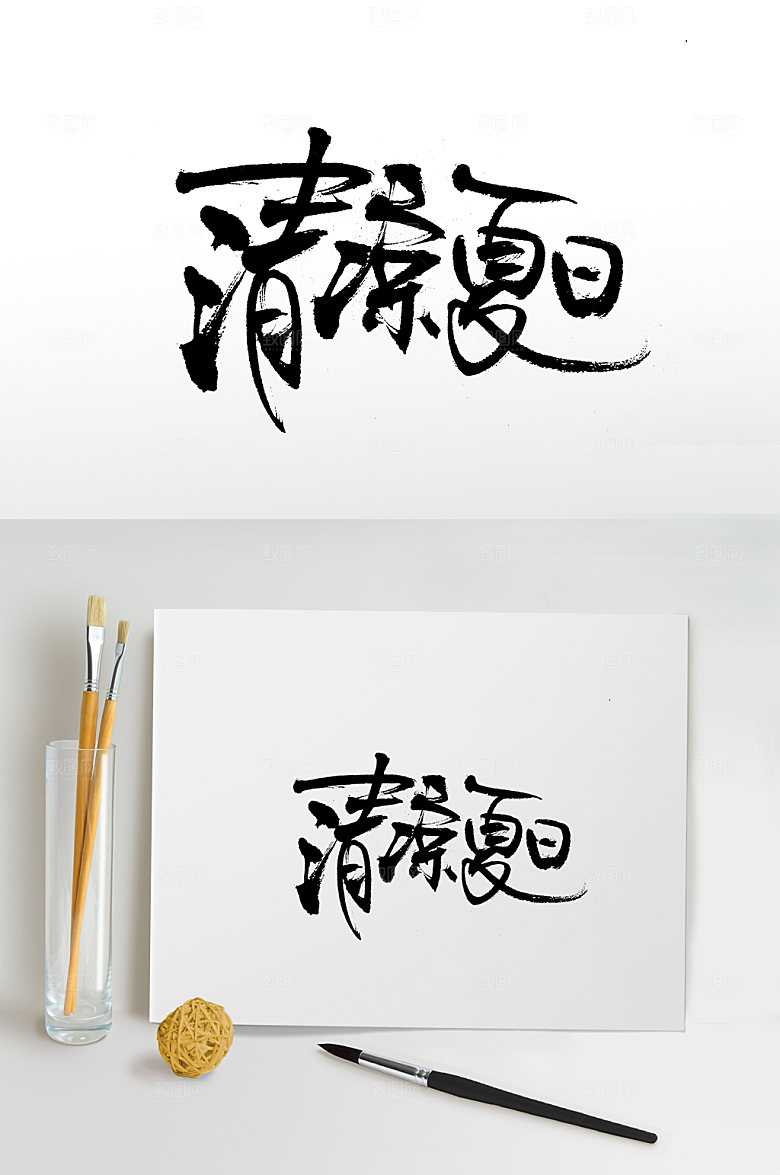 清凉夏日
清凉夏日